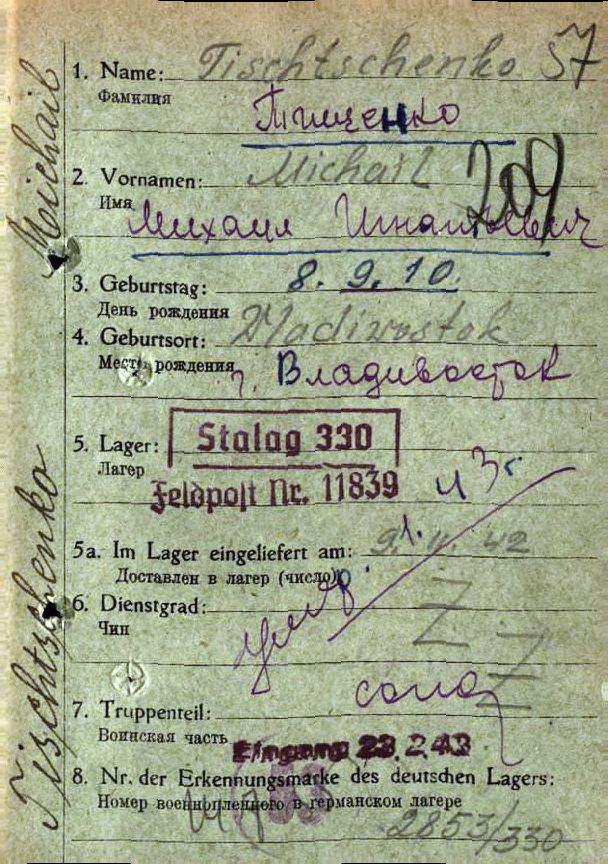 Michail
Tischtschenko
1. Name: Tischtschenko 57
Фамилия
Тищенко
2. Vornamen: Michail 209
Имя
Михаил Игнатьевич
3. Geburtstag: 8. 9. 10.
День рождения
4. Geburtsort: Wladiwostok
Место рождения
г. Владивосток
5. Lager: Stalag 330
Лагер
Feldpost Nr. 11839
5a. Im Lager eingeliefert am:
Доставлен в лагер (число)
6. Dienstgrad:
Чин
Z
Z
7. Truppenteil:
Воинская часть
Eingang 23.2.43
8. Nr. der Erkennungsmarke des deutschen Lagers:
Номер военнопленного в германском лагере
2853/330